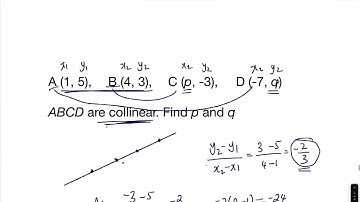 x₁ y₁ x₂ y₂ x₂ y₂ x₂ y₂
A (1, 5), B (4, 3), C (p, -3), D (-7, q)
ABCD are collinear. Find p and q
y₂-y₁ / x₂-x₁ = 3-5 / 4-1 = -2 / 3
-3-5 -2 -2(p-1) = -24